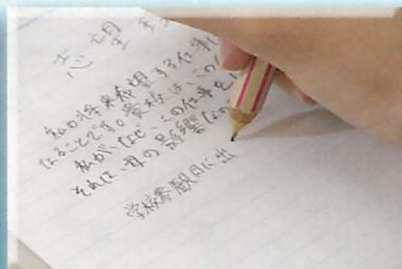 志望
私の将来希望する仕事に
なることです。貴校は、この
私がなぜ、この仕事を
それは、母の影響なの
学校参観日に出